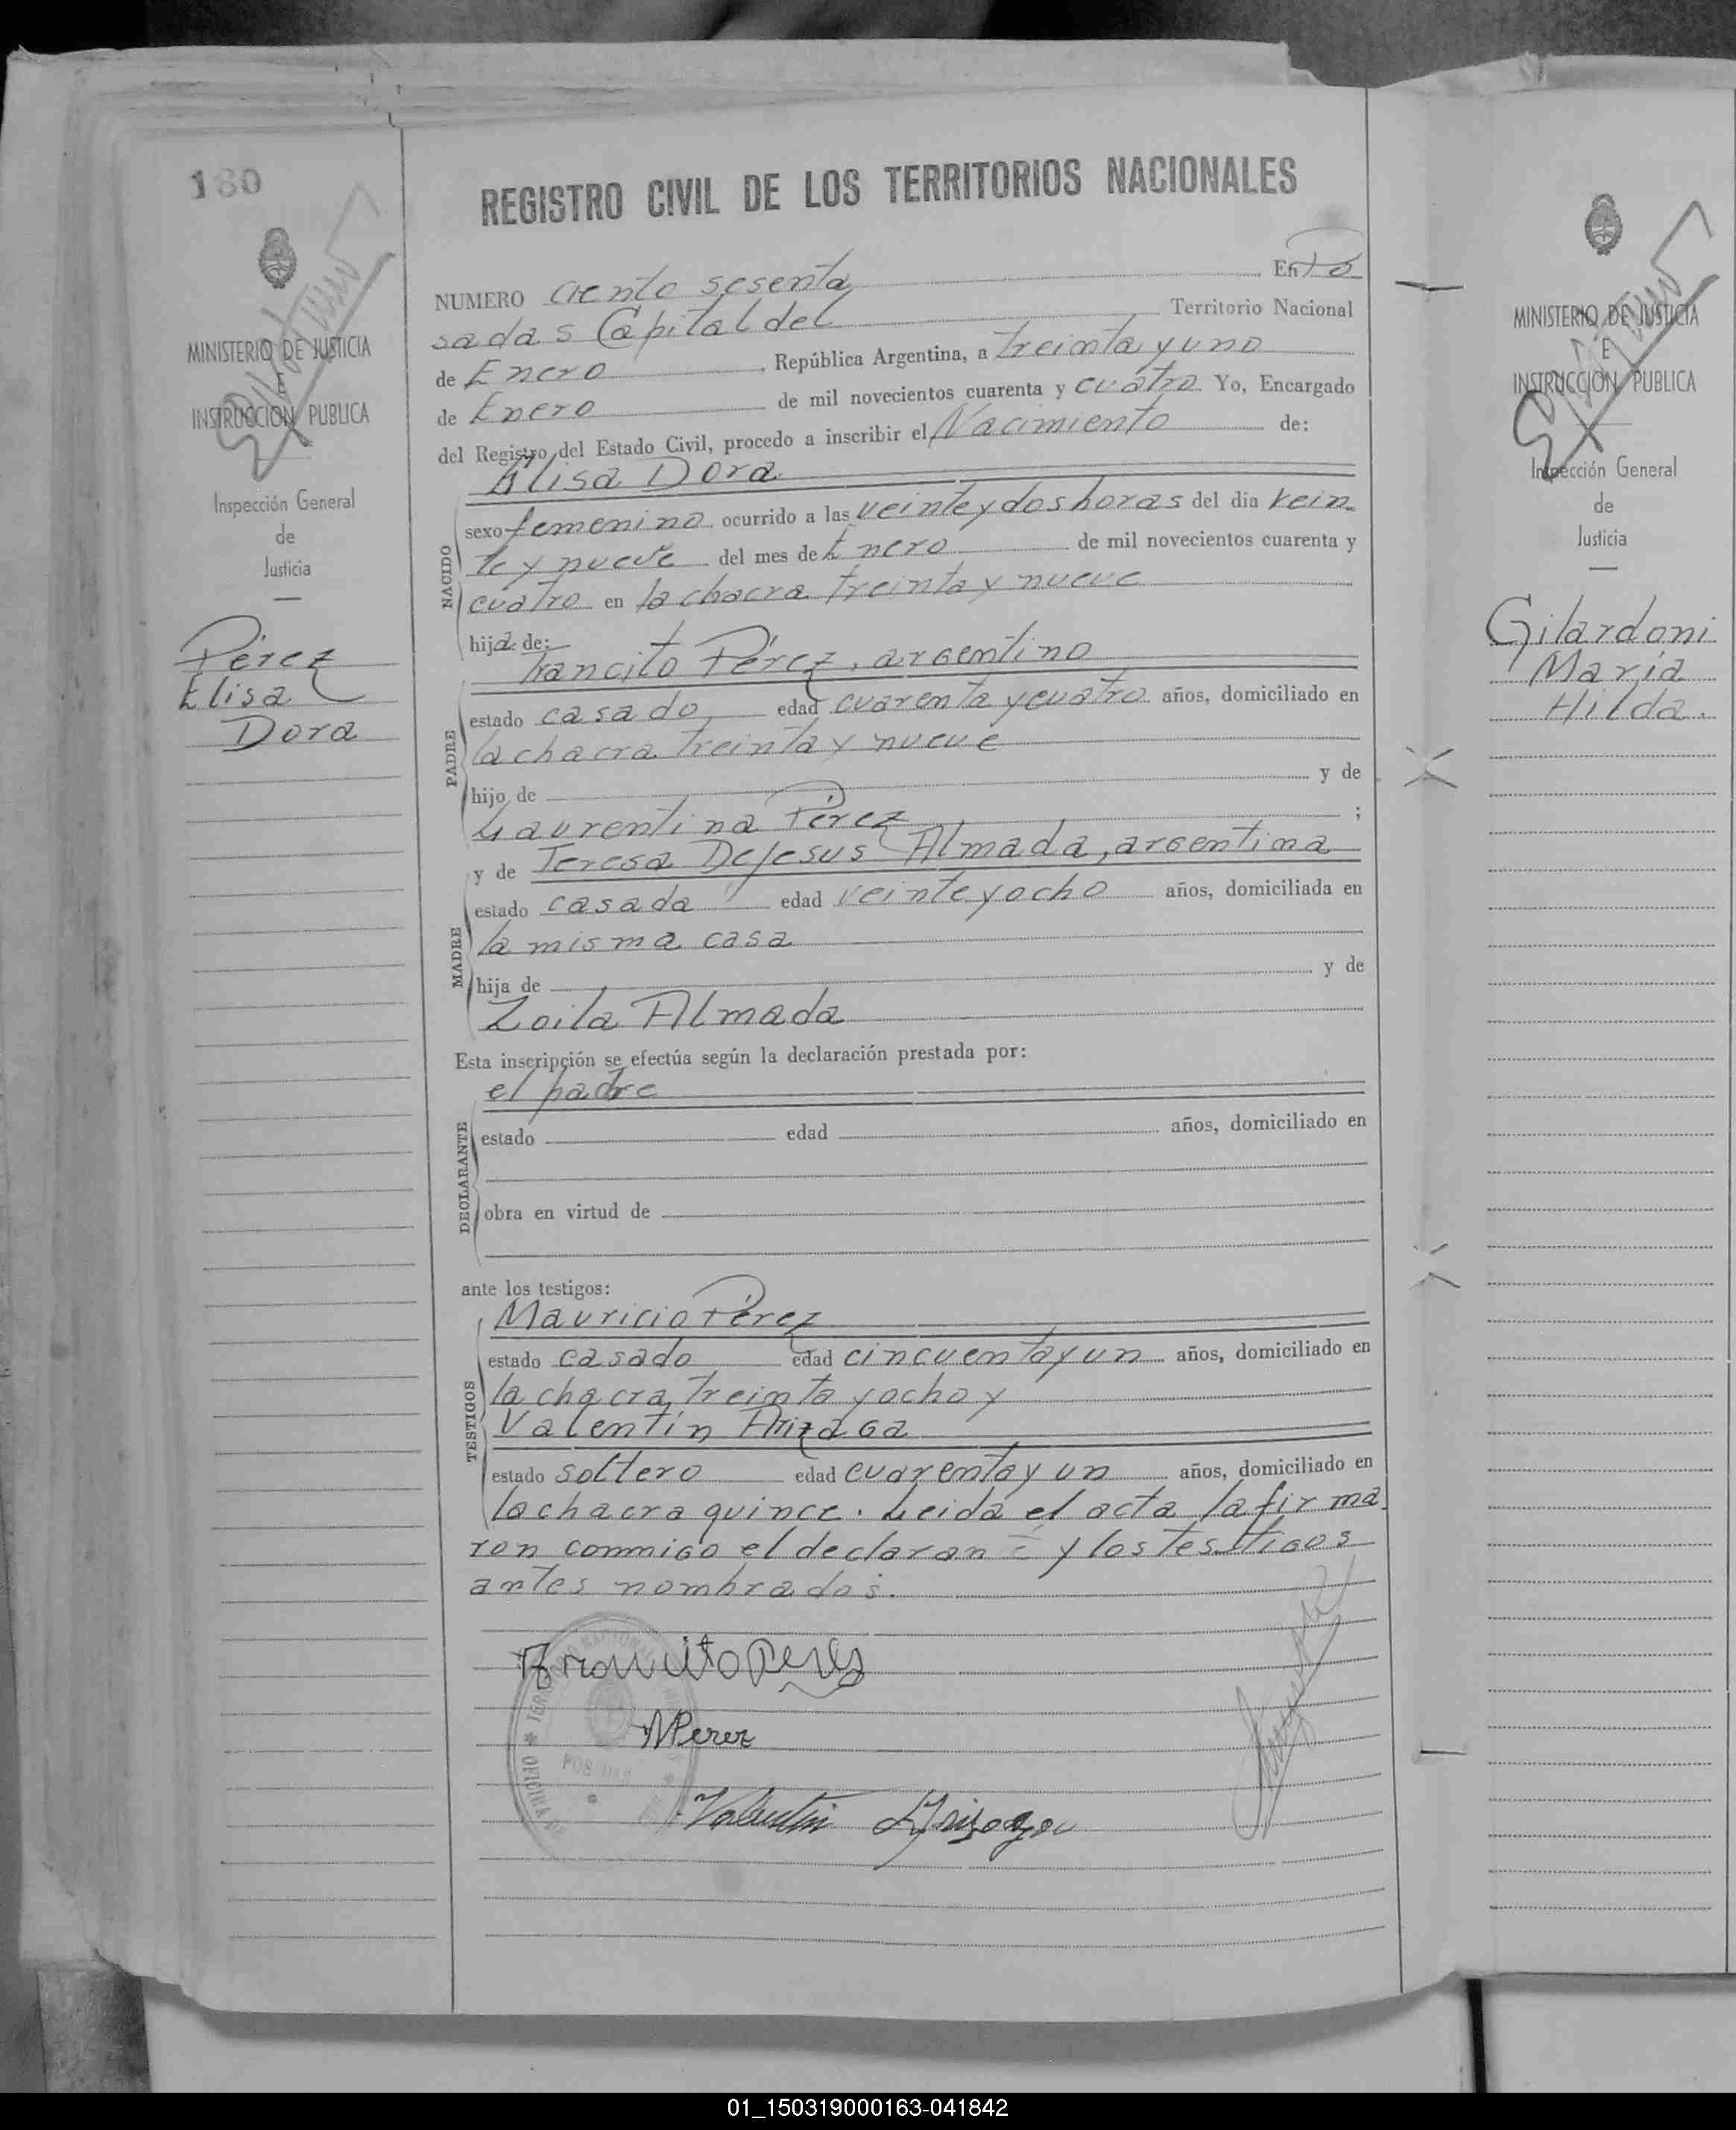 180
REGISTRO CIVIL DE LOS TERRITORIOS NACIONALES
NUMERO ciento sesenta En Po
sadas Capital del Territorio Nacional
de Enero, República Argentina, a treinta y uno
de Enero de mil novecientos cuarenta y cuatro Yo, Encargado
del Registro del Estado Civil, procedo a inscribir el Nacimiento de:
Elisa Dora
sexo femenino ocurrido a las veinte y dos horas del día vein
te y nueve del mes de Enero de mil novecientos cuarenta y
cuatro en la chacra treinta y nueve
NACIDO
hija de:
Trancito Pérez, argentino
estado casado edad cuarenta y cuatro años, domiciliado en
la chacra treinta y nueve
PADRE
hijo de y de
Laurentina Pérez ;
y de Teresa DeJesus Almada, argentina
estado casada edad veinte y ocho años, domiciliada en
la misma casa
MADRE
hija de y de
Zoila Almada
Esta inscripción se efectúa según la declaración prestada por:
el padre
estado edad años, domiciliado en
DECLARANTE
obra en virtud de
ante los testigos:
Mauricio Pérez
estado casado edad cincuenta y un años, domiciliado en
la chacra treinta y ocho y
Valentín Arizaga
TESTIGOS
estado soltero edad cuarenta y un años, domiciliado en
la chacra quince. Leida el acta la firma
ron conmigo el declaran y los testigos
antes nombrados.
Trancito Perez
MPerez
Valentin Arizaga
MINISTERIO DE JUSTICIA
E
INSTRUCCION PUBLICA
Inspección General
de
Justicia
Pérez
Elisa
Dora
MINISTERIO DE JUSTICIA
E
INSTRUCCION PUBLICA
Inspección General
de
Justicia
Gilardoni
María
Hilda.
01_150319000163-041842